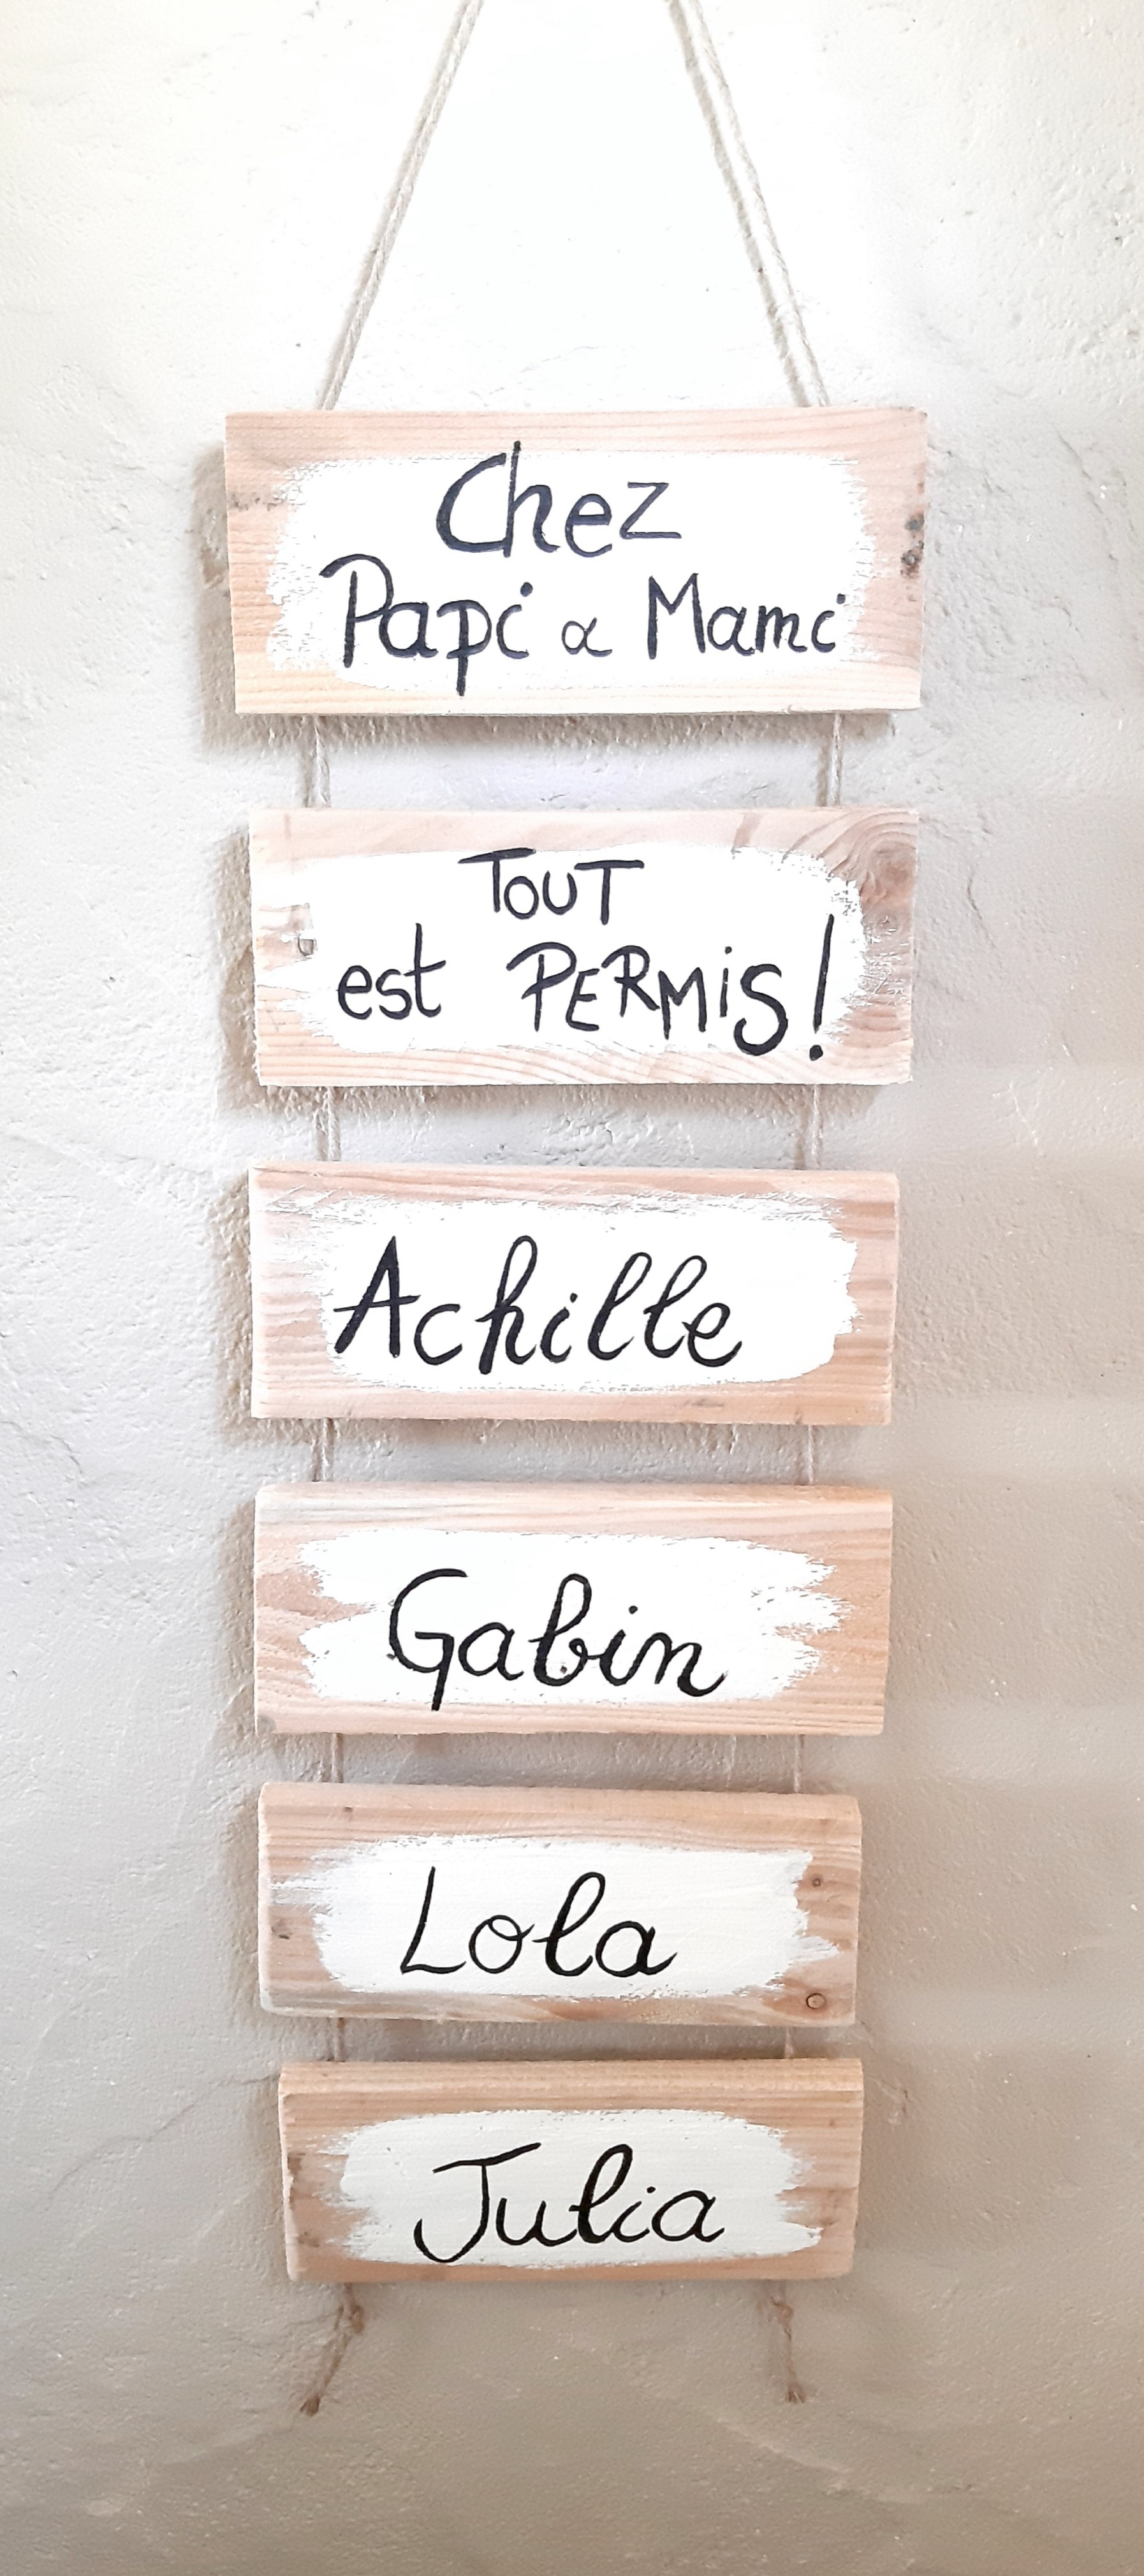 Chez
Papi & Mami
TOUT
est PERMiS!
Achille
Gabin
Lola
Julia